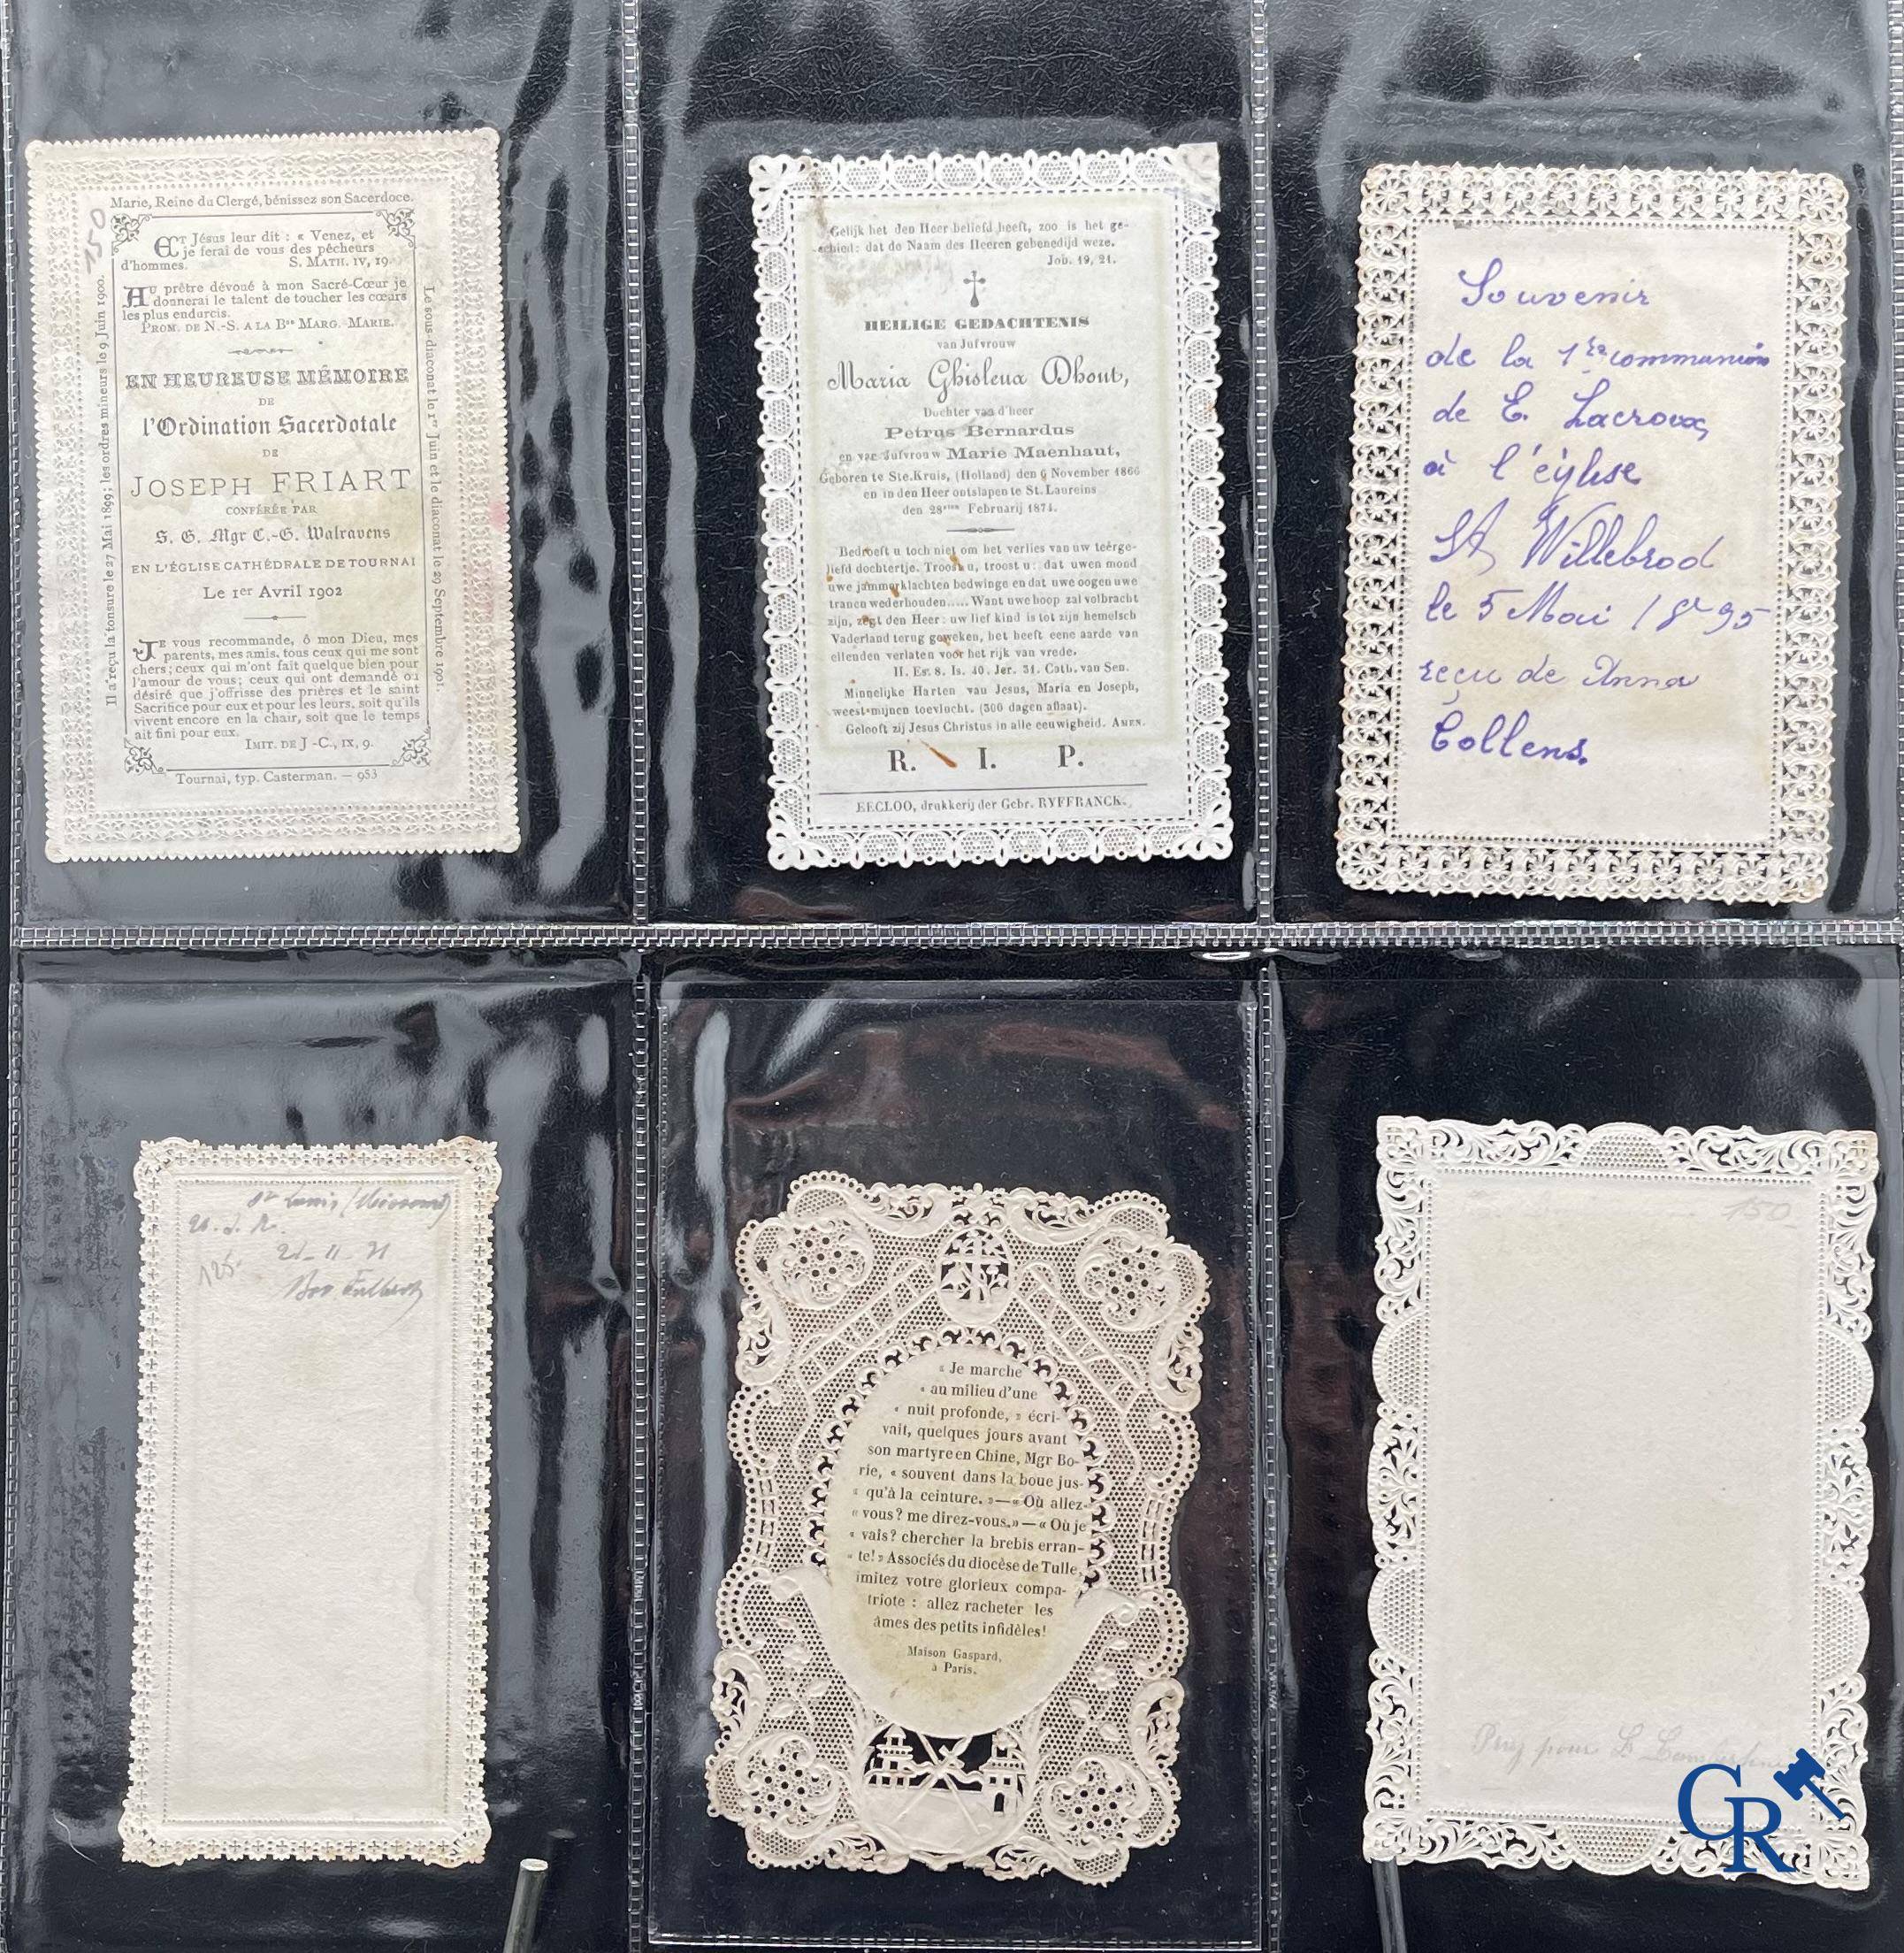 150
Marie, Reine du Clergé, bénissez son Sacerdoce.
Et Jésus leur dit : « Venez, et
je ferai de vous des pêcheurs
d'hommes. S. Math. IV, 19.
Au prêtre dévoué à mon Sacré-Cœur je
donnerai le talent de toucher les cœurs
les plus endurcis.
Prom. de N.-S. a la Bse Marg. Marie.
EN HEUREUSE MÉMOIRE
DE
l'Ordination Sacerdotale
DE
JOSEPH FRIART
CONFÉRÉE PAR
S. G. Mgr C.-G. Walravens
EN L'ÉGLISE CATHÉDRALE DE TOURNAI
Le 1er Avril 1902
Je vous recommande, ô mon Dieu, mes
parents, mes amis, tous ceux qui me sont
chers ; ceux qui m'ont fait quelque bien pour
l'amour de vous ; ceux qui ont demandé ou
désiré que j'offrisse des prières et le saint
Sacrifice pour eux et pour les leurs, soit qu'ils
vivent encore en la chair, soit que le temps
ait fini pour eux.
Imit. de J-C., IX, 9.
Tournai, typ. Casterman. — 953
Il a reçu la tonsure le 27 Mai 1899; les ordres mineurs le 9 Juin 1900.
Le sous-diaconat le 1er Juin et le diaconat le 29 Septembre 1901.
Gelijk het den Heer beliefd heeft, zoo is het ge-
schied: dat de Naam des Heeren gebenedijd weze.
Job. 19, 21.
HEILIGE GEDACHTENIS
van Jufvrouw
Maria Ghislena Dhont,
Dochter van d'heer
Petrus Bernardus
en van Jufvrouw Marie Maenhaut,
Geboren te Ste.Kruis, (Holland) den 6 November 1866
en in den Heer ontslapen te St. Laureins
den 28sten Februarij 1871.
Bedroeft u toch niet om het verlies van uw teêrge-
liefd dochtertje. Troost u, troost u: dat uwen mond
uwe jammerklachten bedwinge en dat uwe oogen uwe
tranen wederhouden..... Want uwe hoop zal volbracht
zijn, zegt den Heer: uw lief kind is tot zijn hemelsch
Vaderland terug geweken, het heeft eene aarde van
ellenden verlaten voor het rijk van vrede.
II. Es. 8. Is. 40. Jer. 31. Cath. van Sen.
Minnelijke Harten van Jesus, Maria en Joseph,
weest mijnen toevlocht. (300 dagen aflaat).
Gelooft zij Jesus Christus in alle eeuwigheid. Amen.
R. I. P.
EECLOO, drukkerij der Gebr. RYFFRANCK.
Souvenir
de la 1ère communion
de E. Lacroix
à l'église
St Willebrod
le 5 Mai 1895
reçu de Anna
Collens.
St Louis (Missouri)
21-11-71
125
« Je marche
« au milieu d'une
« nuit profonde, » écri-
vait, quelques jours avant
son martyre en Chine, Mgr Bo-
rie, « souvent dans la boue jus-
« qu'à la ceinture. »—« Où allez-
« vous? me direz-vous.»—« Où je
« vais? chercher la brebis erran-
« te! » Associés du diocèse de Tulle,
imitez votre glorieux compa-
triote : allez racheter les
âmes des petits infidèles!
Maison Gaspard,
à Paris.
150
pour
GR